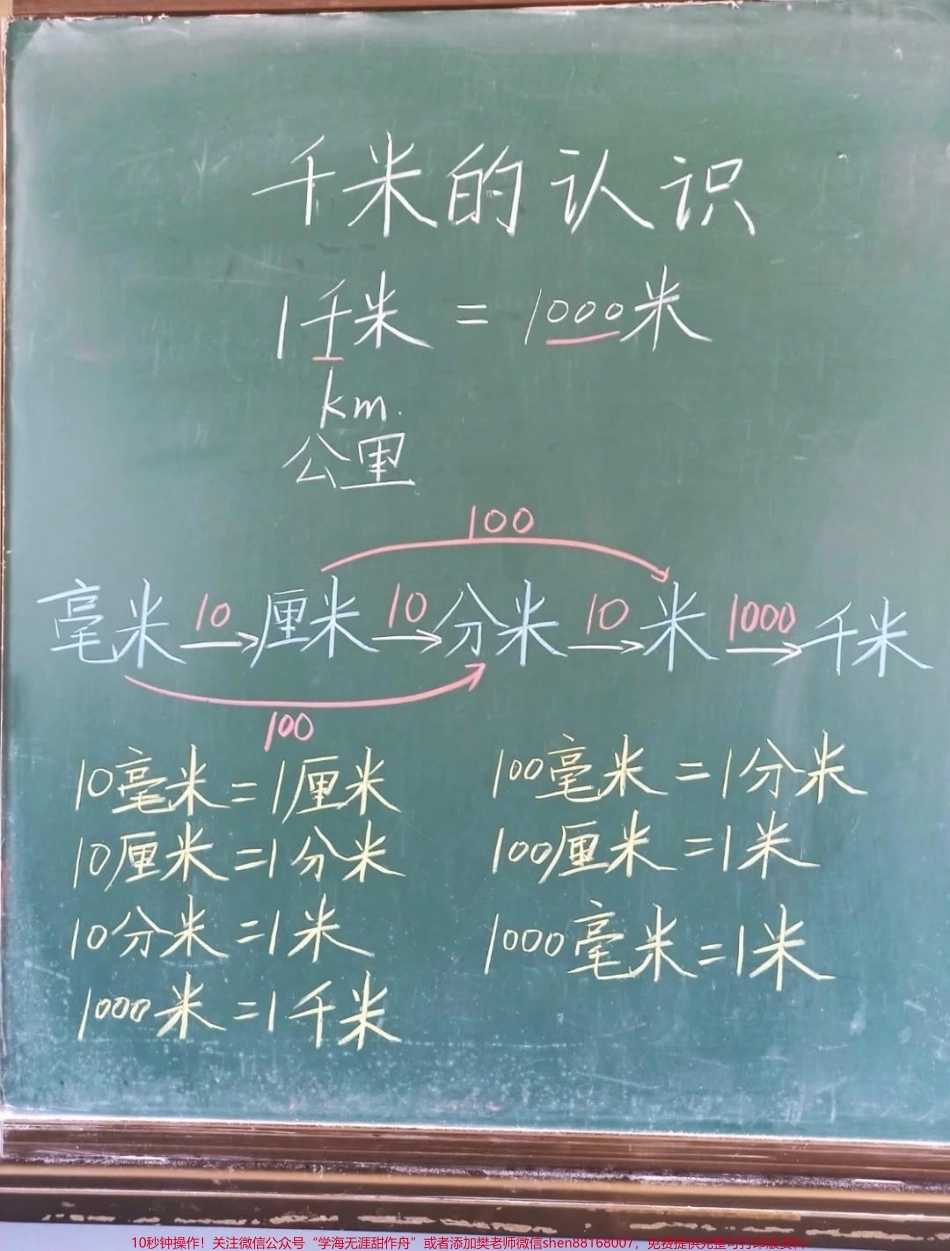 千米的认识
1千米 = 1000米
km.
公里
100
毫米 10 厘米 10 分米 10 米 1000 千米
100
10毫米=1厘米
100毫米=1分米
10厘米=1分米
100厘米=1米
10分米=1米
1000毫米=1米
1000米=1千米
10秒钟操作！关注微信公众号“学海无涯甜作舟”或者添加樊老师微信shen88168007，免费提供完整可打印版资料！